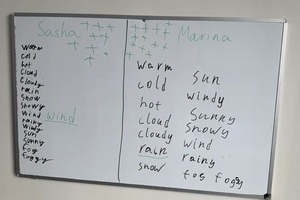 Sasha
warm
cold
hot
cloud
cloudy
rain
snow
snowy
wind wind
rainy
windy
sun
sunny
fog
foggy
Marina
warm
cold
hot
cloud
cloudy
rain
snow
sun
windy
sunny
snowy
wind
rainy
fog foggy